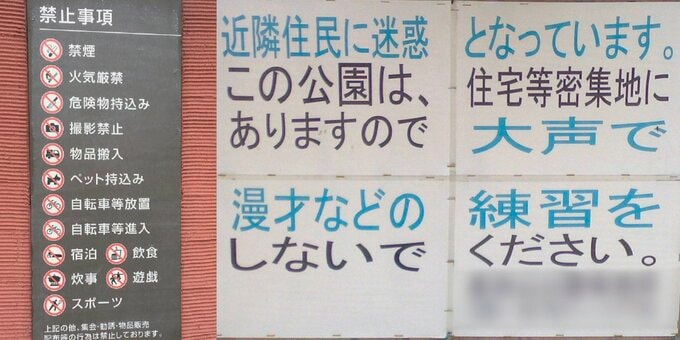 禁止事項
禁煙
火気厳禁
危険物持込み
撮影禁止
物品搬入
ペット持込み
自転車等放置
自転車等進入
宿泊 飲食
炊事 遊戯
スポーツ
上記の他、集会・勧誘・物品販売
配布等の行為は禁止しております。
近隣住民に迷惑となっています。
この公園は、住宅等密集地に
ありますので大声で
漫才などの練習を
しないでください。